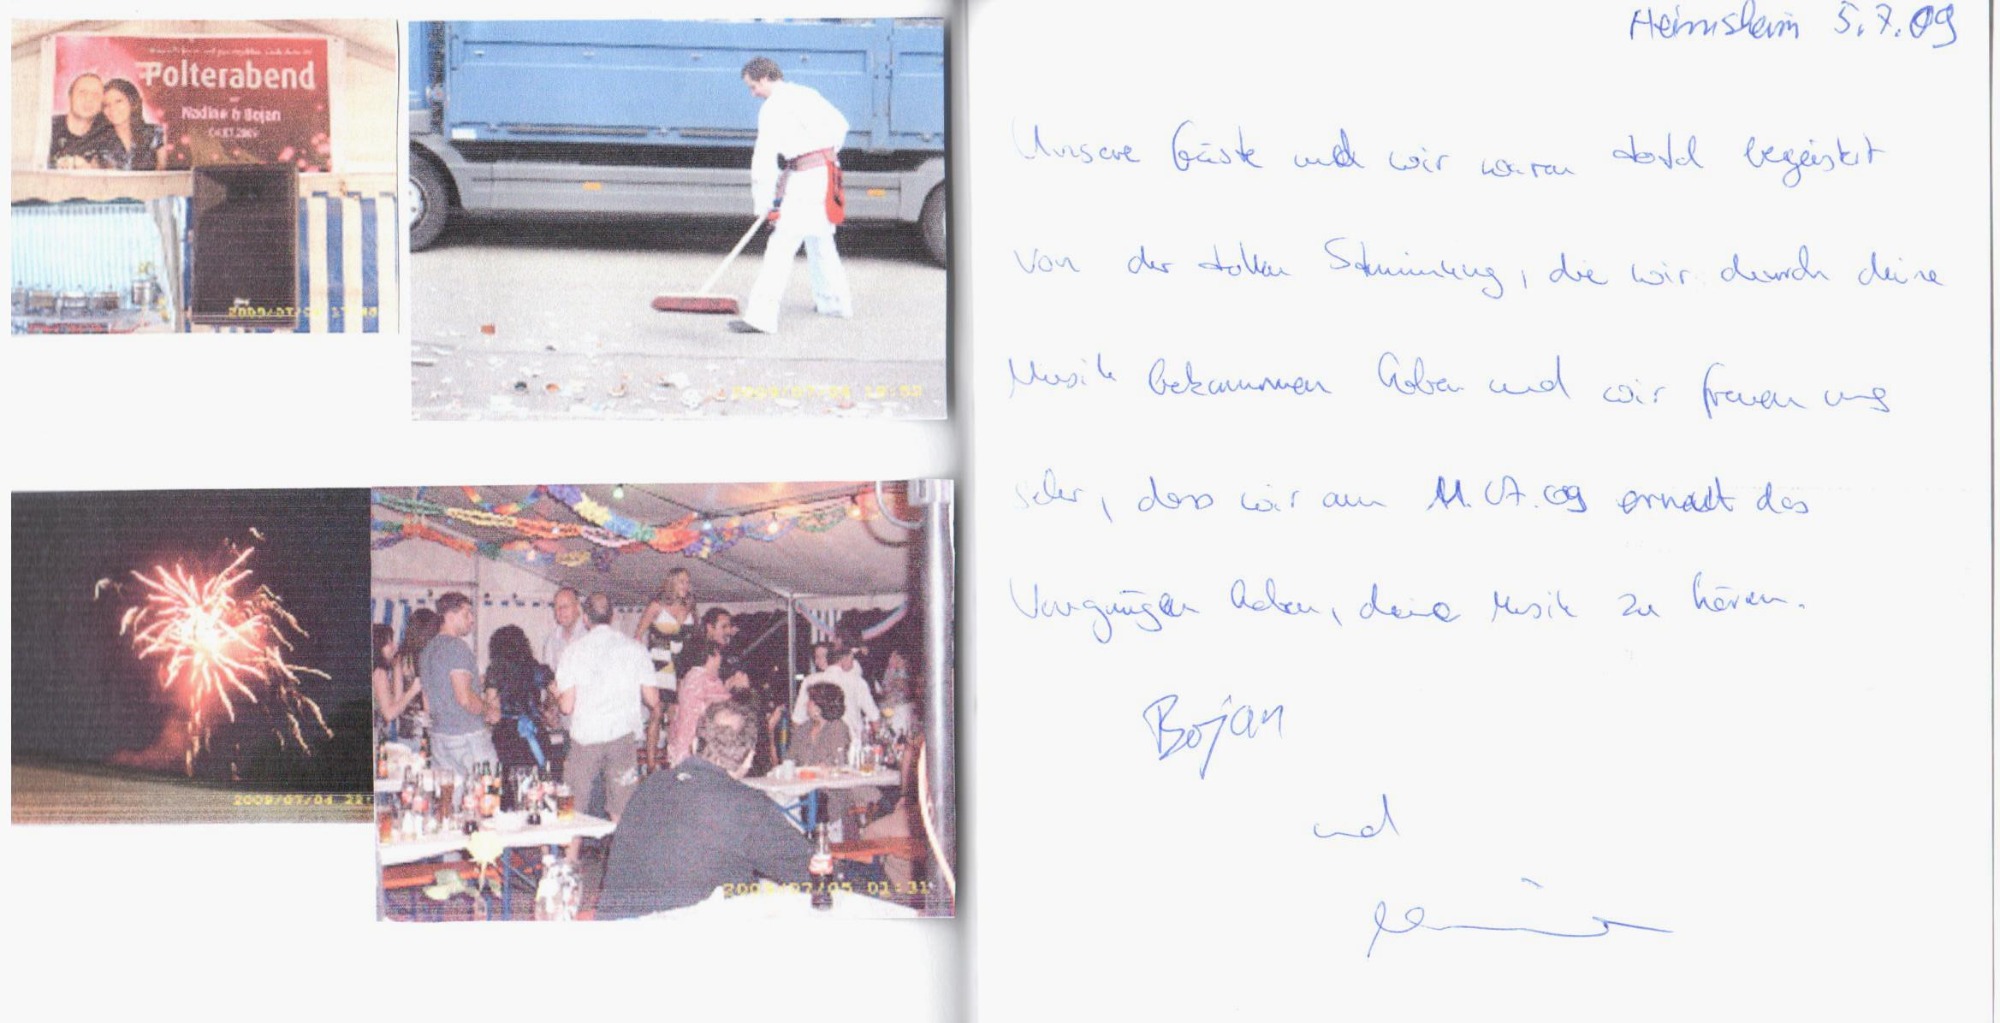 Polterabend
Nadine & Bojan
04.07.2009
2009/07/04 19:32
2009/07/04 22:
2009/07/05 01:31
Heimsheim 5.7.09
Unsere Gäste und wir waren total begeistert
von der tollen Stimmung, die wir durch deine
Musik bekommen haben und wir freuen uns
sehr, dass wir am 11.07.09 erneut das
Vergnügen haben, deine Musik zu hören.
Bojan
und